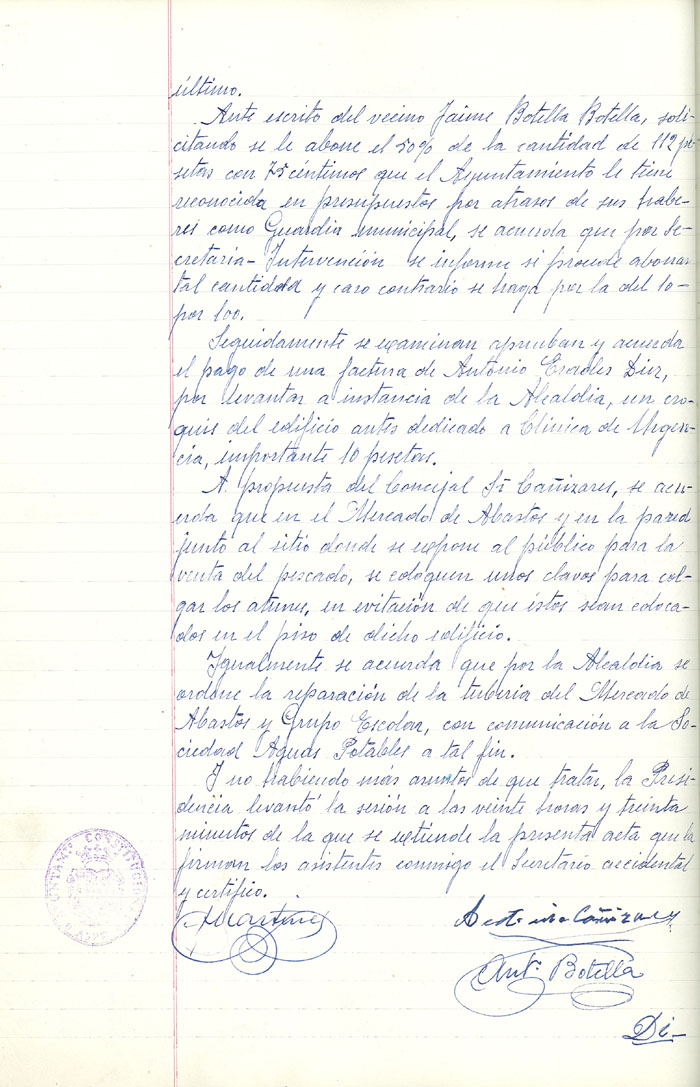 último.
Ante escrito del vecino Jaime Botella Botella, soli-
citando se le abone el 50% de la cantidad de 112 pe
setas con 75 céntimos que el Ayuntamiento le tiene
reconocida en presupuestos por atrasos de sus habe-
res como Guardia municipal, se acuerda que por Se-
cretaria-Intervención se informe si procede abonar
tal cantidad y caso contrario se haga por la del 10-
por 100.
Seguidamente se examinan aprueban y acuerda
el pago de una factura de Antonio Erades Diez,
por levantar a instancia de la Alcaldia, un cro-
quis del edificio antes dedicado a Clínica de Urgen-
cia, importante 10 pesetas.
A propuesta del Concejal Sr Cañizares, se acu-
erda que en el Mercado de Abastos y en la pared
junto al sitio donde se expone al público para la
venta del pescado, se coloquen unos clavos para col-
gar los atunes, en evitación de que éstos sean coloca-
dos en el piso de dicho edificio.
Igualmente se acuerda que por la Alcaldia se
ordene la reparación de la tuberia del Mercado de
Abastos y Grupo Escolar, con comunicación a la So-
ciedad Aguas Potables a tal fin.
Y no habiendo más asuntos de que tratar, la Presi-
dencia levantó la sesión a las veinte horas y treinta
minutos de la que se extiende la presente acta que la
firman los asistentes conmigo el Secretario accidental
y certifico.
Martinez Cañizares
Antº Botella
Di-